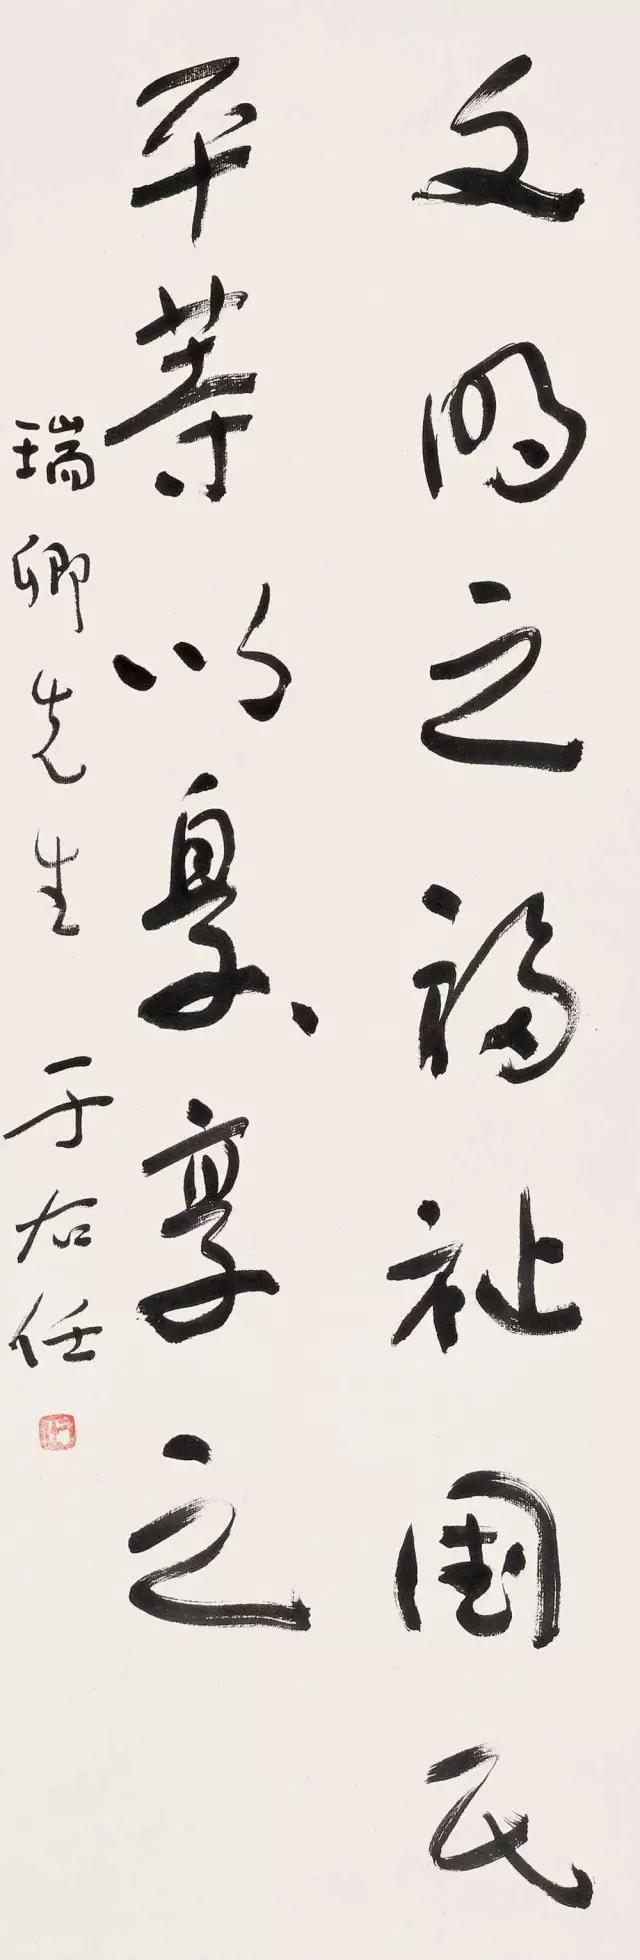 文明之福祉國民
平等以享之
瑞卿先生 于右任